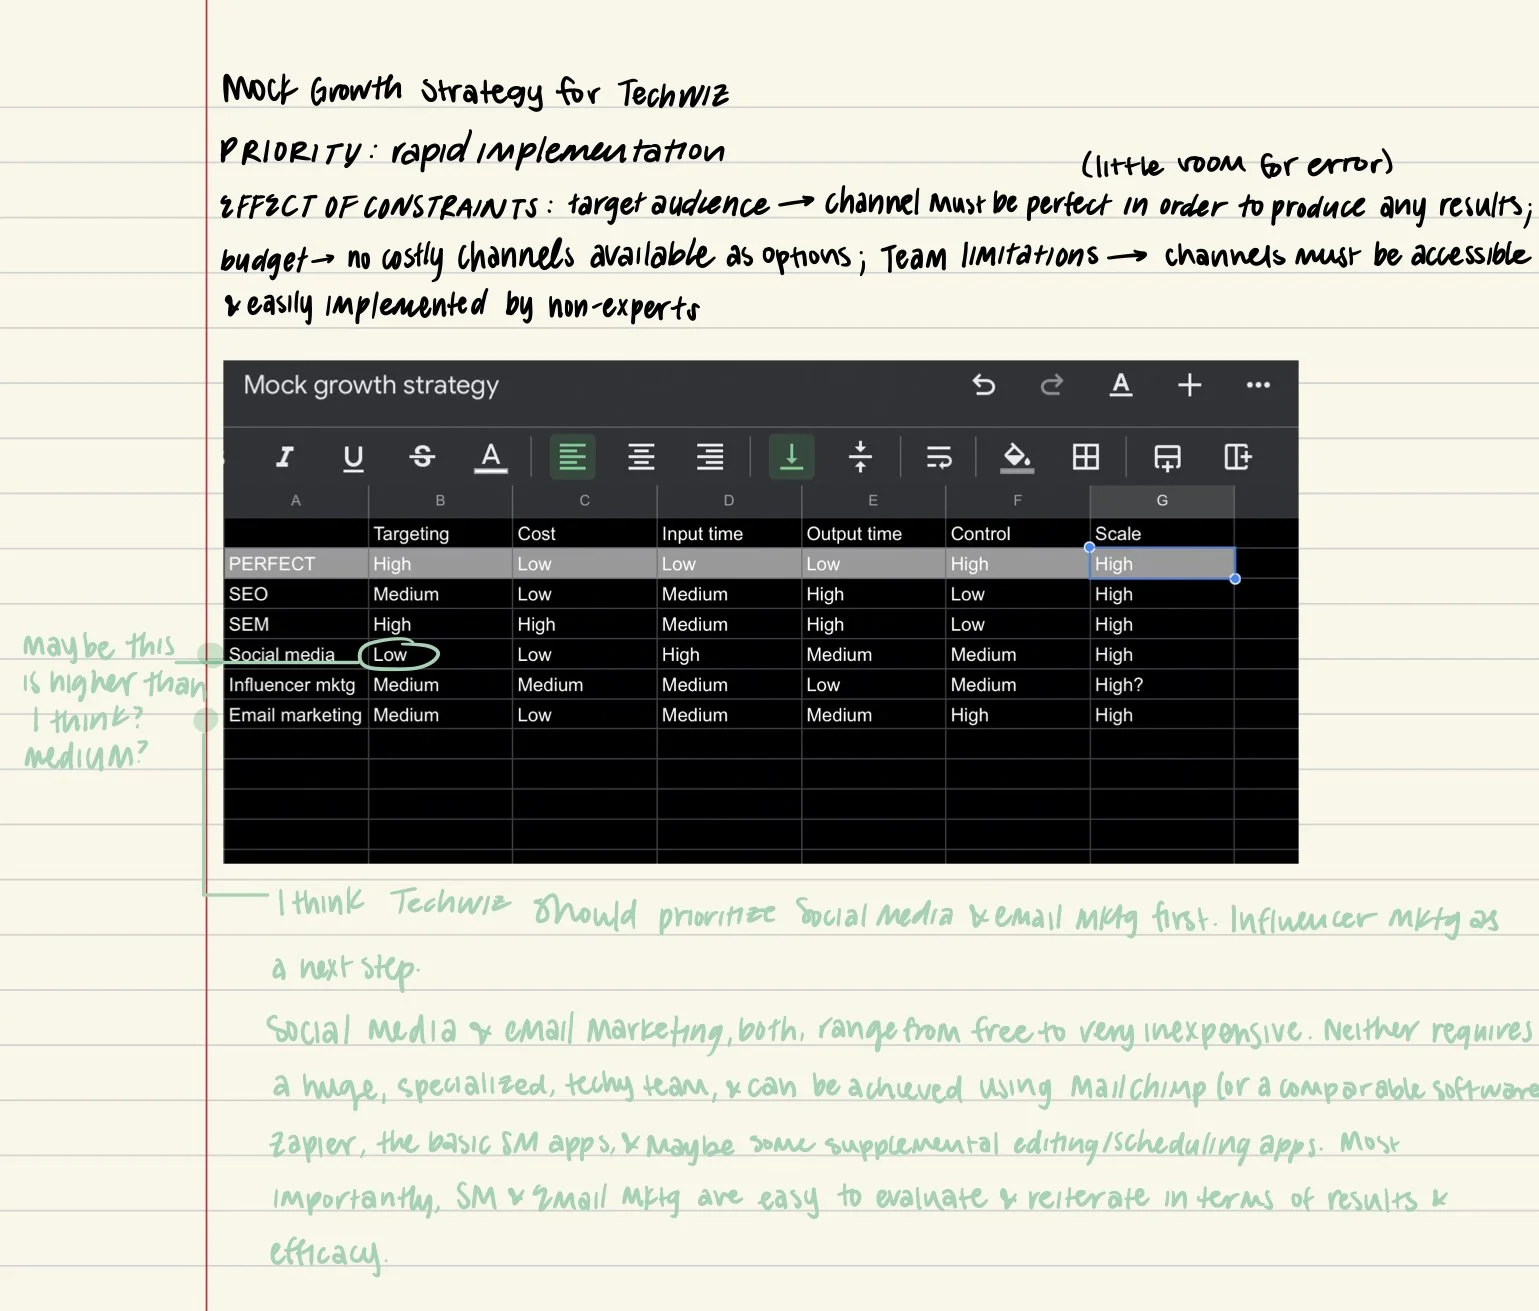 Mock Growth Strategy for Techwiz
PRIORITY: rapid implementation
(little room for error)
EFFECT OF CONSTRAINTS: target audience → channel must be perfect in order to produce any results;
budget → no costly channels available as options; Team limitations → channels must be accessible
& easily implemented by non-experts
Mock growth strategy
A B C D E F G
Targeting Cost Input time Output time Control Scale
PERFECT High Low Low Low High High
SEO Medium Low Medium High Low High
SEM High High Medium High Low High
Social media Low Low High Medium Medium High
Influencer mktg Medium Medium Medium Low Medium High?
Email marketing Medium Low Medium Medium High High
Maybe this
is higher than
I think?
medium?
I think Techwiz should prioritize social media & email mktg first. Influencer mktg as
a next step.
Social media & email marketing, both, range from free to very inexpensive. Neither requires
a huge, specialized, techy team, & can be achieved using Mailchimp (or a comparable software
Zapier, the basic SM apps, & maybe some supplemental editing/scheduling apps. Most
importantly, SM & Email mktg are easy to evaluate & reiterate in terms of results &
efficacy.